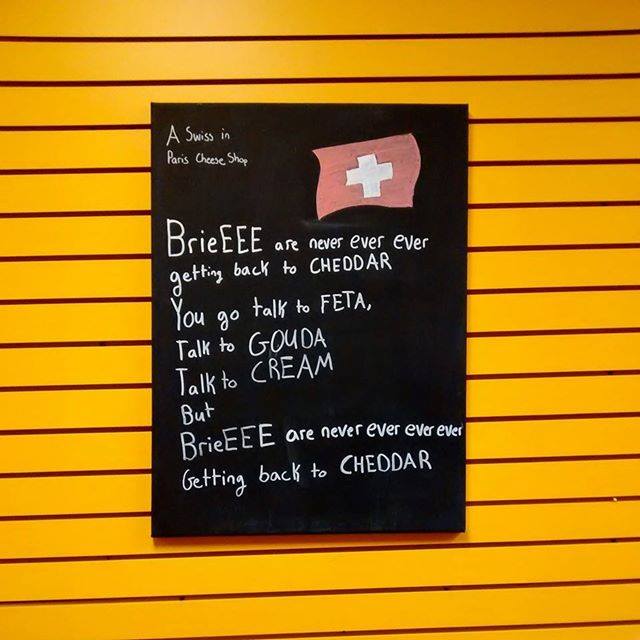 A Swiss in
Paris Cheese Shop
BrieEEE are never ever ever
getting back to CHEDDAR
You go talk to FETA,
Talk to GOUDA
Talk to CREAM
But
BrieEEE are never ever ever ever
Getting back to CHEDDAR